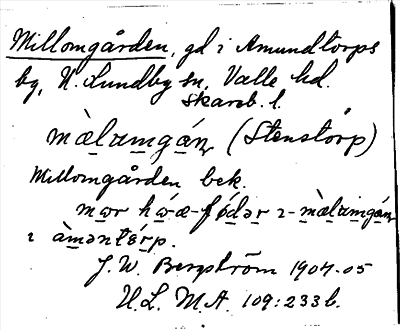 Millomgården, gd i Amundtorps
by, N. Lundby sn, Valle hd.
Skarab. l.
mæ̀lumgán (Stenstorp)
Millomgården bek.
mor há-æ-fǿdər ɪ-mæ̀lumgán
ɪ àməntǿrp.
J. W. Bergström 1904-05
U.L. M.A. 109:233 b.